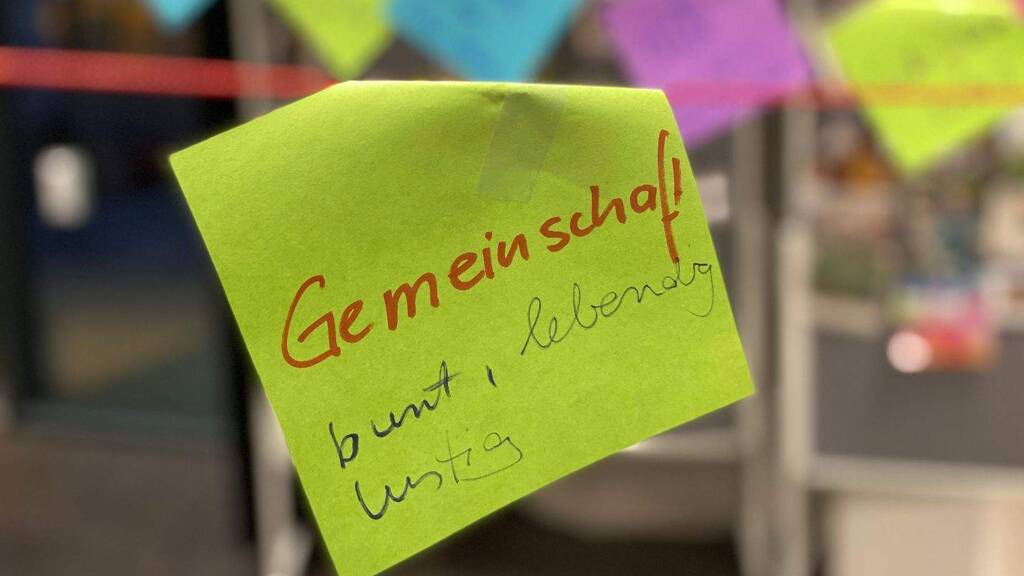 Gemeinschaft
bunt, lebendig
lustig